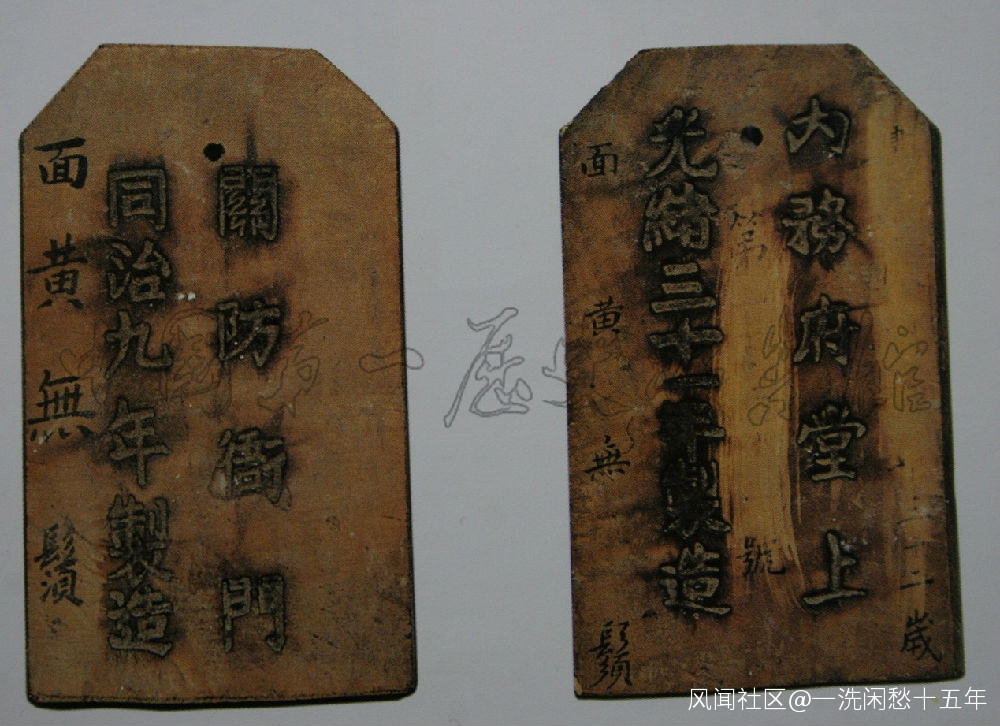 關防衙門
同治九年製造
面黃無鬚
內務府堂上
二十二歲
第 號
光緒三十一年製造
面黃無鬚
风闻社区@一洗闲愁十五年